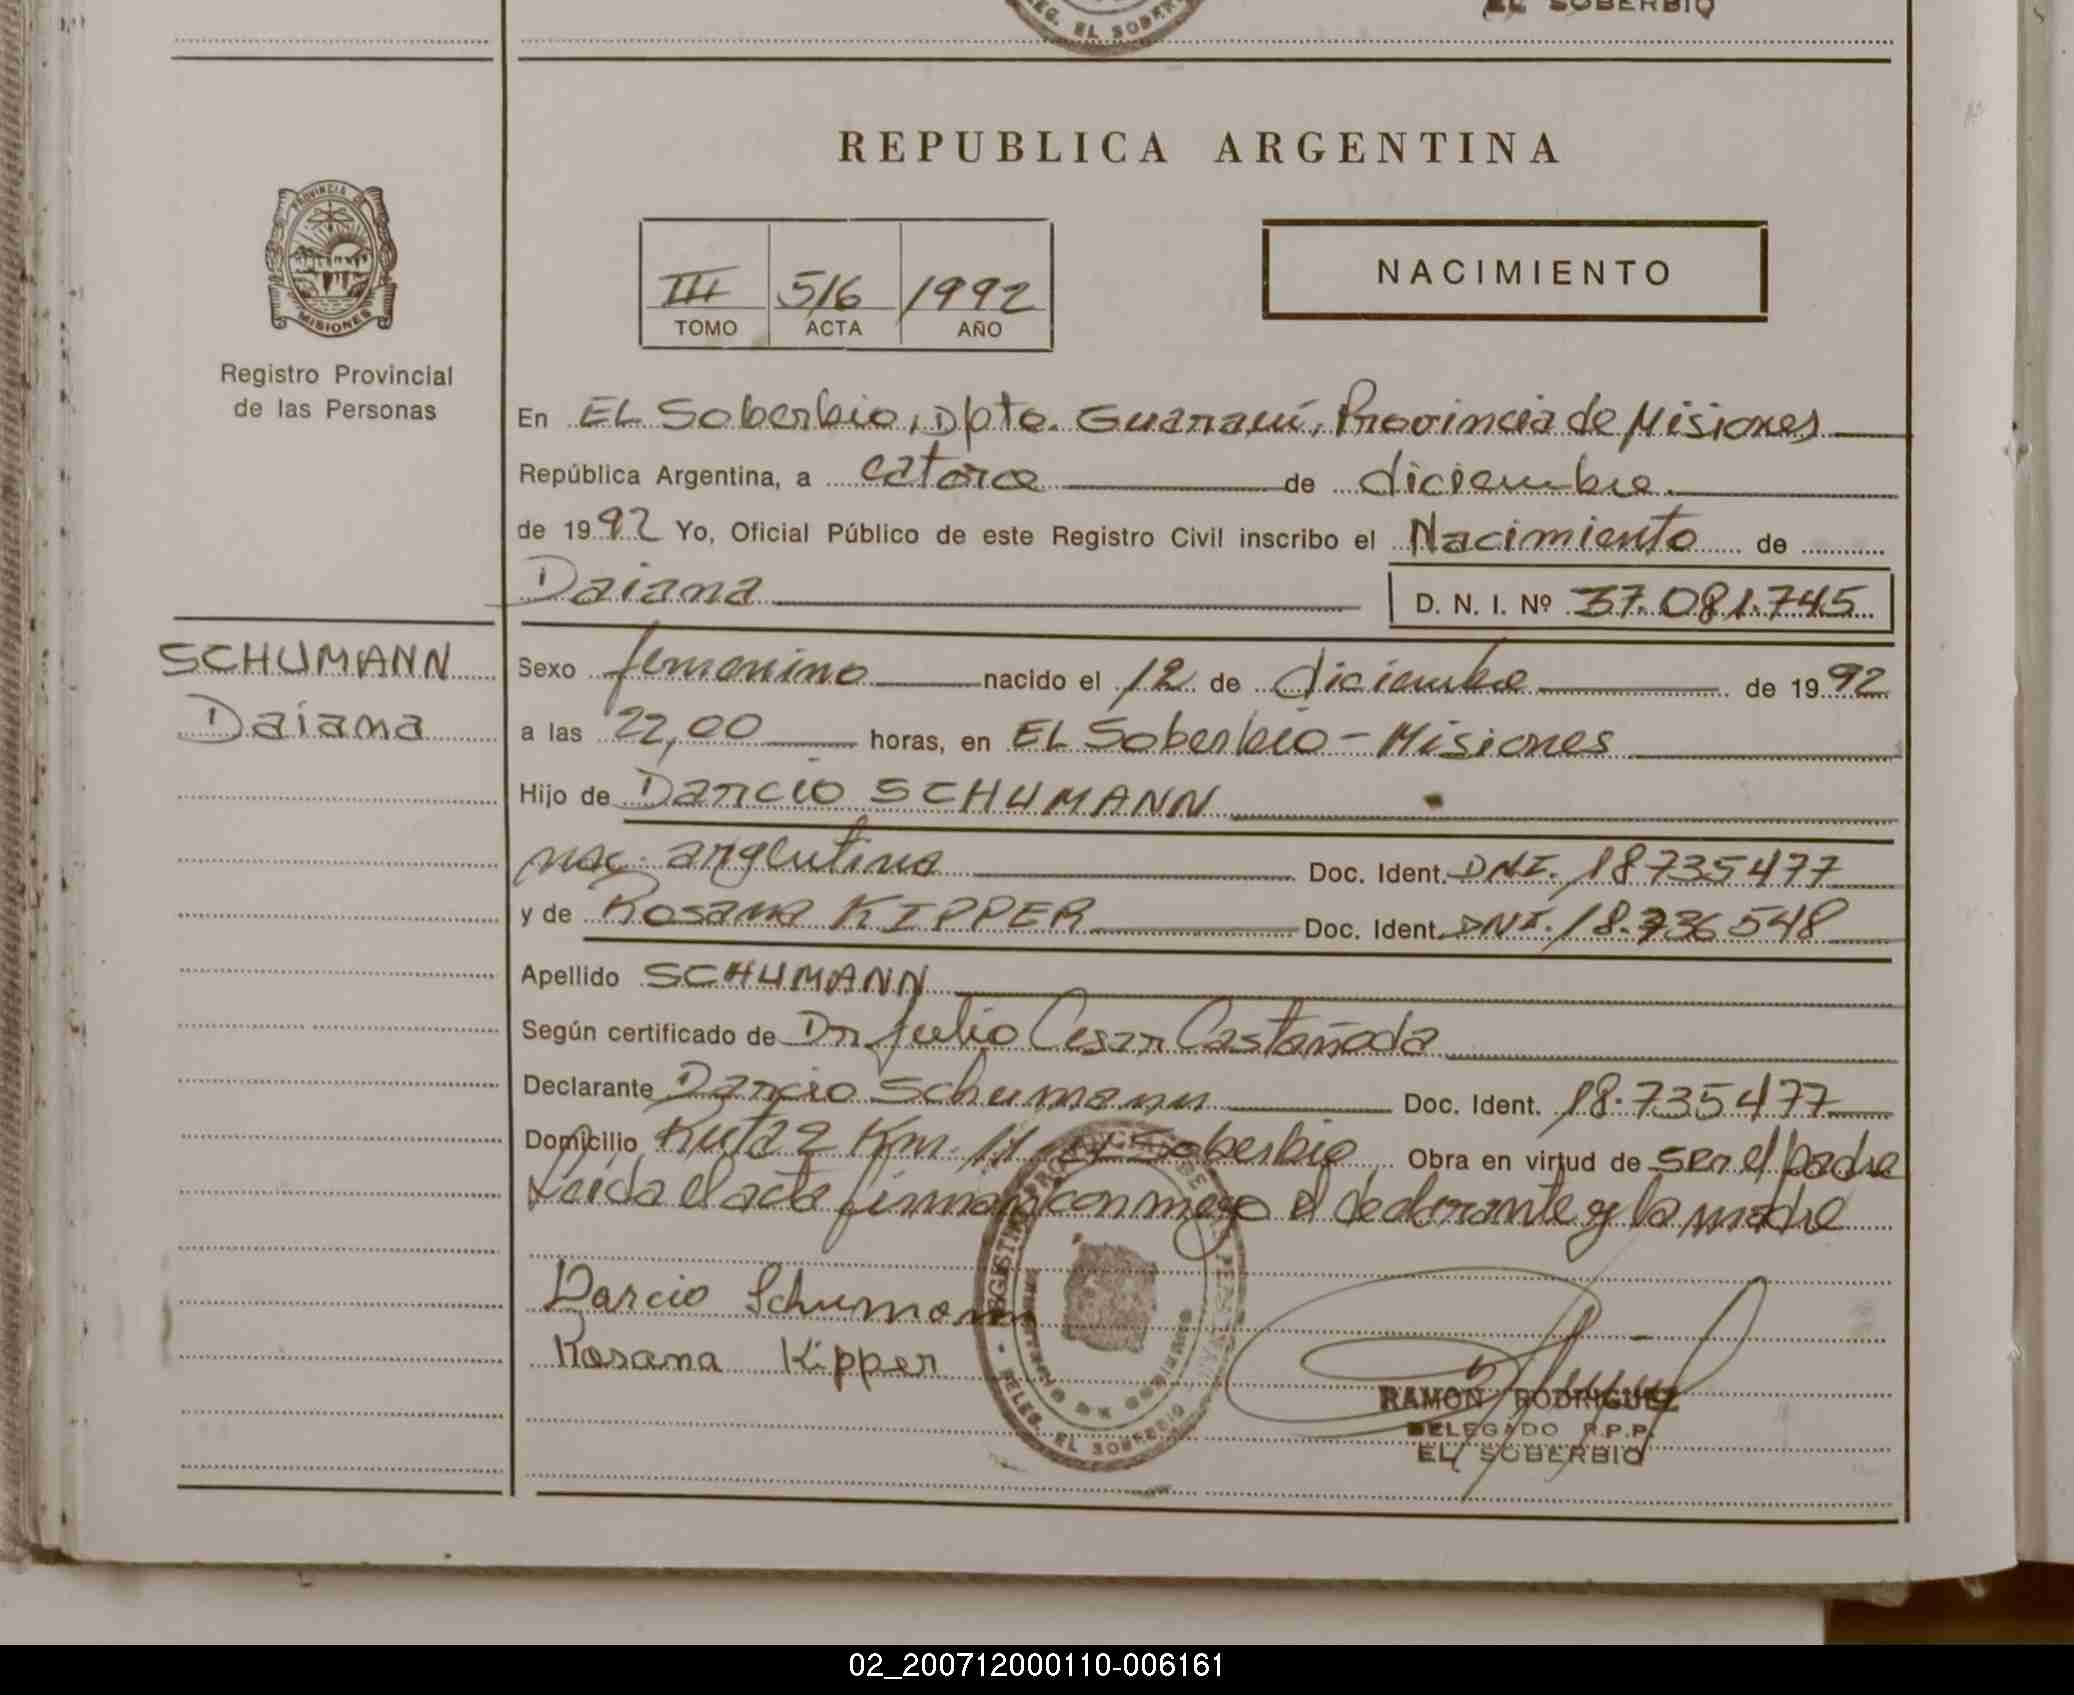 DELEG. EL SOBERBIO
EL SOBERBIO
REPUBLICA ARGENTINA
PROVINCIA DE
MISIONES
Registro Provincial
de las Personas
III 516 1992
TOMO ACTA AÑO
NACIMIENTO
En EL Soberbio, Dpto. Guaraní, Provincia de Misiones
República Argentina, a catorce de diciembre
de 1992 Yo, Oficial Público de este Registro Civil inscribo el Nacimiento de
Daiana D. N. I. Nº 37.081.745
SCHUMANN
Daiana
Sexo femenino nacido el 12 de diciembre de 1992
a las 22,00 horas, en EL Soberbio - Misiones
Hijo de Darcio SCHUMANN
nac. argentina Doc. Ident. DNI. 18735477
y de Rosana KIPPER Doc. Ident. DNI. 18.736548
Apellido SCHUMANN
Según certificado de Dr Julio Cesar Castañada
Declarante Darcio Schumann Doc. Ident. 18.735477
Domicilio Ruta 2 Km. 11 El Soberbio Obra en virtud de ser el padre
Leida el acta firman conmigo el declarante y la madre
Darcio Schumann
Rosana Kipper
DELEG. EL SOBERBIO
RAMON RODRIGUEZ
DELEGADO R.P.P.
EL SOBERBIO
02_200712000110-006161